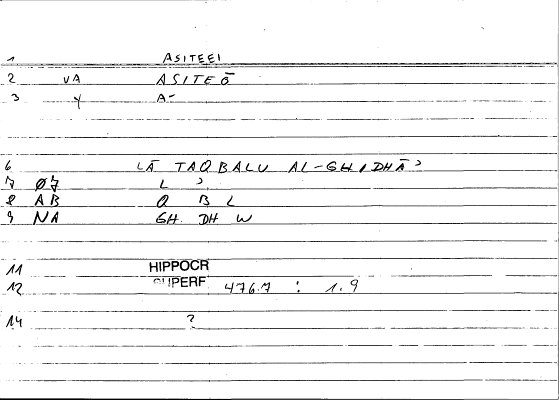 1 ASITEEI
2 VA ASITEŌ
3 Y A-
6 LĀ TAQBALU AL-GHIDHĀʾ
7 Ø7 L ʾ
8 AB Q B L
9 NA GH DH W
11 HIPPOCR
12 SUPERF 476.7 : 1.9
14 ?